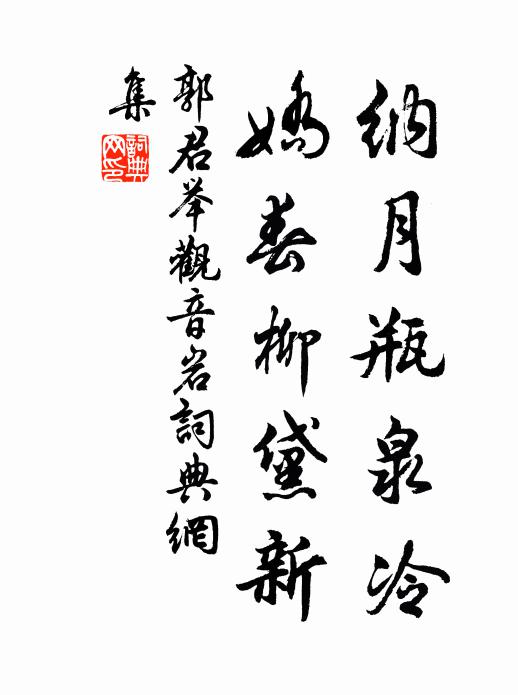 納月瓶泉冷
嬌春柳黛新
郭君举觀音岩詞典網
集
詞典網印